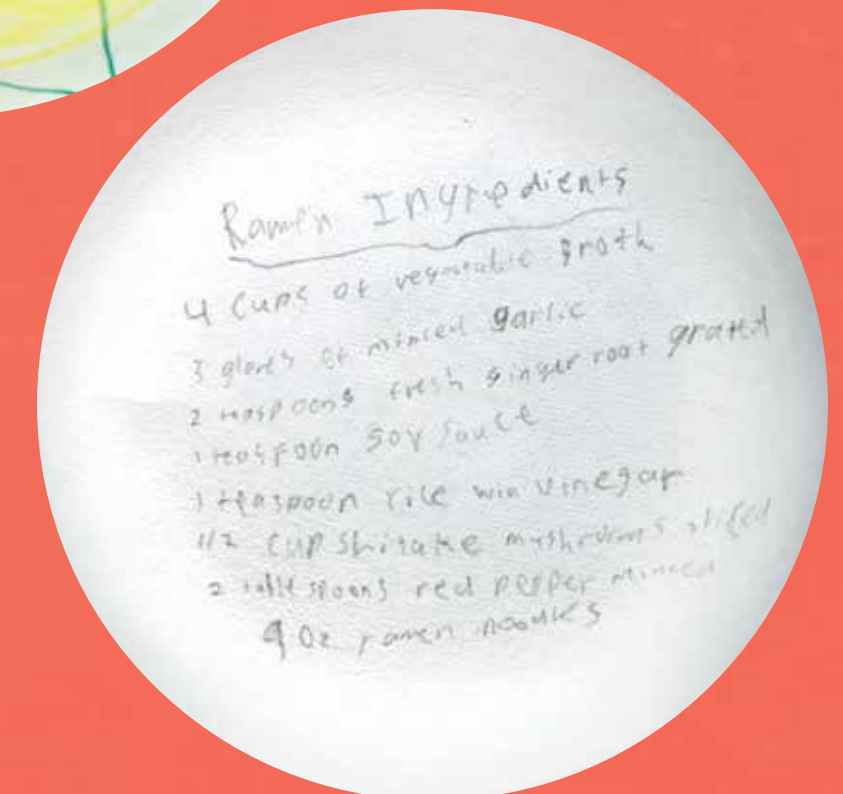 Ramen Ingredients
4 cups of vegetable Broth
3 gloves of minced garlic
2 teaspoons fresh ginger root grated
1 teaspoon soy sauce
1 teaspoon rice win vinegar
1/2 cup shitake mushrooms sliced
2 table spoons red pepper minced
oz ramen noodles